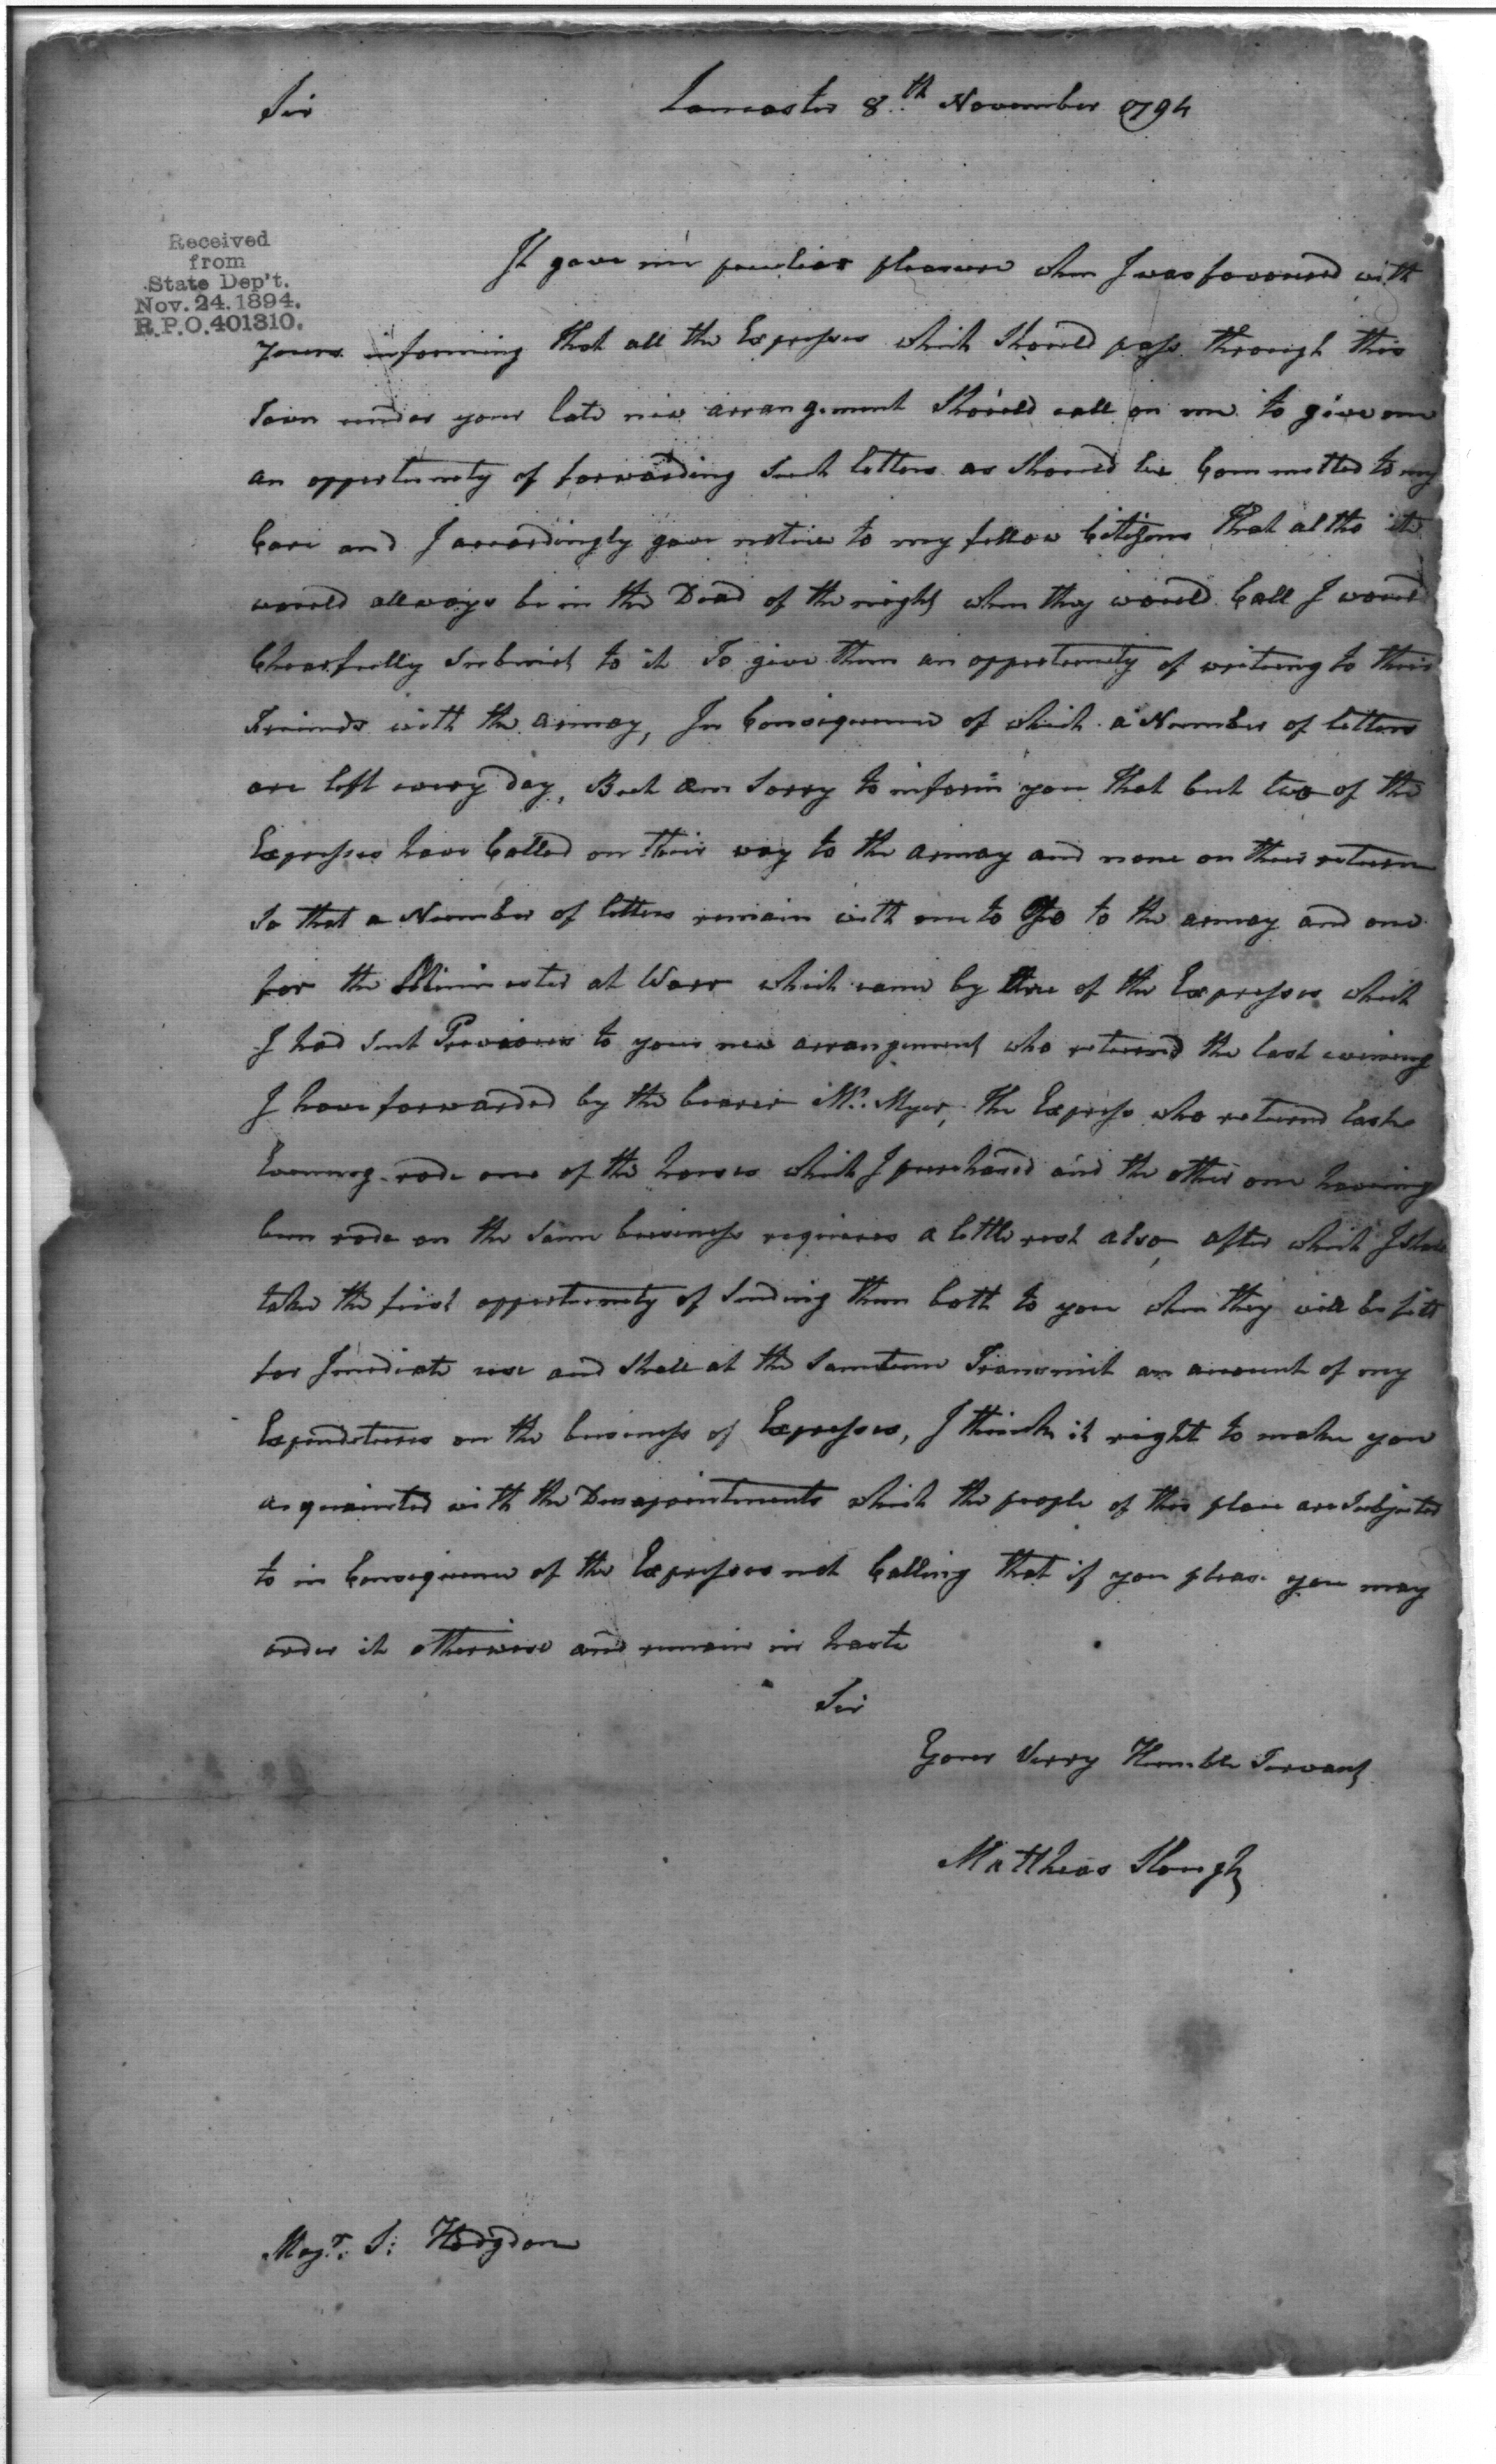 Sir Lancaster 8th November 1794
Received
from
State Dep't.
Nov. 24. 1894.
R.P.O. 401310.
It gave me peculiar pleasure when I was favoured with
yours informing that all the Expresses which Should pass through this
Town under your late new arrangement Should call on me to give me
an oppertunety of forwarding Such letters as Should be Committed to my
Care and I accordingly gave notice to my fellow Citizens That altho it
would allways be in the Dead of the night when they would Call I would
Chearfully Submit to it To give them an oppertunety of writeing to their
Friends with the armay, In Consequence of which a Number of letters
are left every day, But am Sorry to inform you That but two of the
Expresses have Called on their way to the armay and none on their return
So that a Number of letters remain with me to Go to the armay and one
for the Minnister at Warr which came by three of the Expresses which
I had Sent Previous to your new arrangement who returned the last evening
I have forwarded by the bearer Mr. Myer, The Express who returned last
Evening rode one of the horses which I purchased and the other one haveing
been rode on the Same business requires a little rest also, after which I shall
take the first oppertunety of Sending them both to you when they will be fitt
for Imediate use and Shall at the Sametime Transmit an account of my
Expenditures on the business of Expresses, I think it right to make you
acquainted with the Disapointments which the people of this place are Subjected
to in Consequence of the Expresses not Calling That if you please you may
order it otherwise and remain in haste
Sir
Your Verry Humble Servant
Matthias Slough
Majr. S: Hodgdon